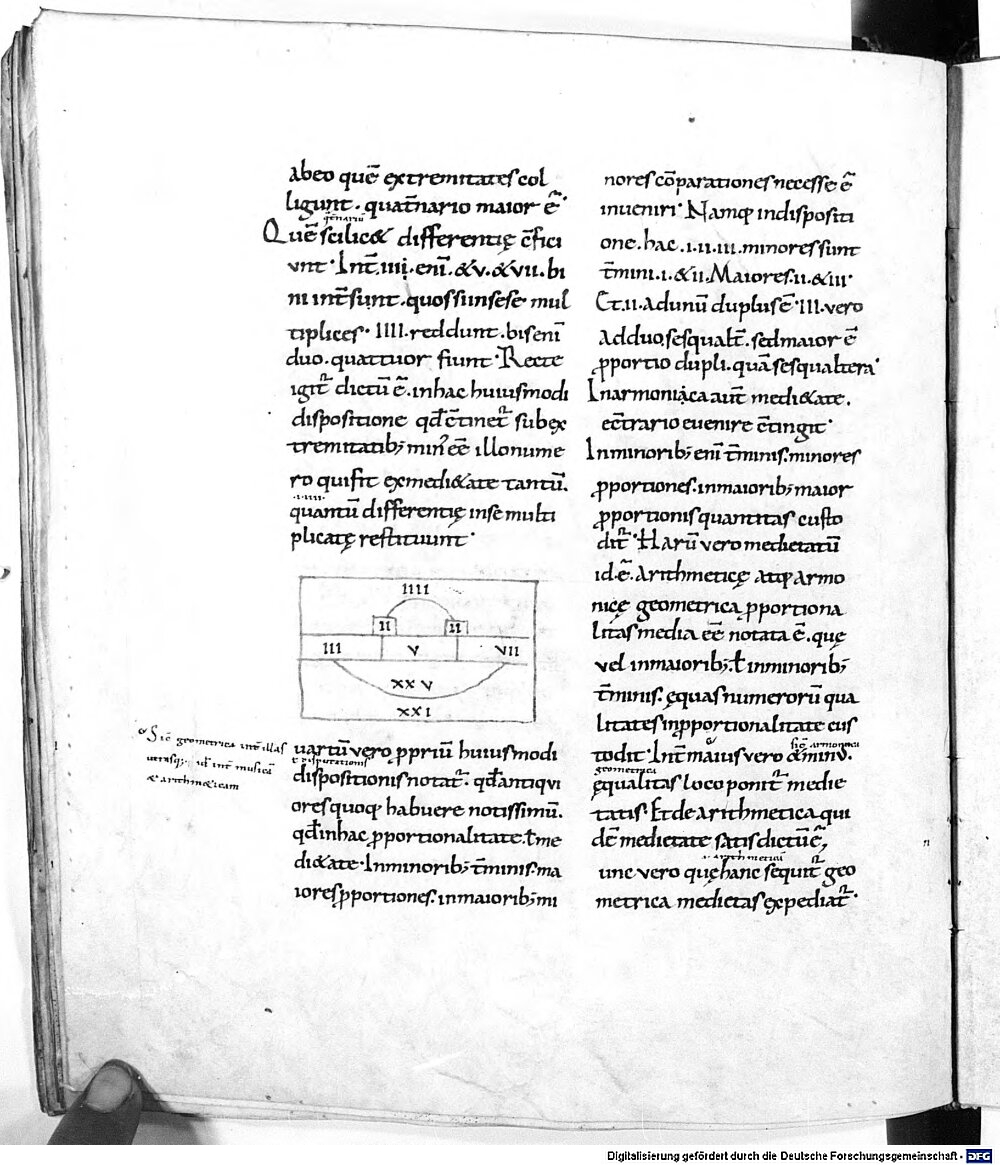 abeo quē extremitates col
ligunt. quat̄nario maior ē.
Quē scilic& differentię c̄fici
unt. Int̄. iii. eni. & v. & vii. bi
ni int̄ sunt. quos si in sese mul
tiplices. IIII. reddunt. bis enī
duo. quattuor fiunt. Recte
igit̄ dictū ē. in hac huiusmodi
dispositione qđ c̄tinet̄ sub ex
tremitatib; min' eē illo nume
ro qui fit ex medi&ate tantū.
.i. IIII.
quantū differentię in se multi
plicatę restituunt.
IIII
II II
III V VII
XXV
XXI
Sic̄ geometrica int̄ illas
utrasq; uł int̄ musicā
& arithm&icam
uartū vero ppriū huiusmodi
disputationis
dispositionis notat̄. qđ antiqui
ores quoq; habuere notissimū.
qđ in hac pportionalitate. ł me
di&ate. In minorib; t̄minis. ma
iores pportiones. in maiorib; mi
nores cōparationes necesse ē
inueniri. Namq; in dispositi
one. hac. .i. ii. iii. minores sunt
t̄mini. i. & ii. Maiores. ii. & iii.
Et. ii. ad unū duplus ē. III. vero
ad duo, sesqualt̄. sed maior ē
pportio dupli. quā sesqualtera.
In armoniaca aut̄ medi&ate.
ec̄trario euenire c̄tingit.
In minorib; enī t̄minis. minores
pportiones. in maiorib; maior
pportionis quantitas custo
dit̄. Harū vero medietatū
id. ē. arithmeticę atq; armo
nicę geometrica pportiona
litas media eē notata ē. quę
vel in maiorib; ł in minorib;
t̄minis. ęquas numerorū qua
litates in pportionalitate cus
sic̄ armonica
todit. Int̄ maius vero & minu.
geometrica
ęqualitas loco ponit̄ medie
tatis. Et de arithmetica qui
dē medietate satis dictū ē,
.i. arithmeticā
unc vero quę hanc sequit̄ geo
metrica medietas expediat̄.